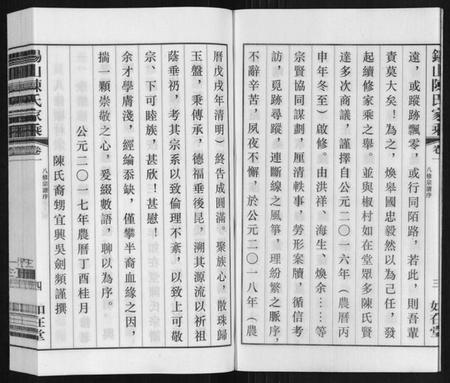 錫山陳氏家乘 卷一 八修宗譜序 三 如在堂
遠，或蹤跡飄零，或行同陌路，若此，則吾輩
責莫大矣！為之，煥皋國忠毅然以為己任，發
起續修家乘之舉。並與椒村如在堂眾多陳氏賢
達多次商議，謹擇自公元二〇一六年（農曆丙
申年冬至）啟修。由洪祥、海生、煥余……等
宗賢協同謀劃，厘清軼事，勞形案牘，循信考
訪，覓跡尋蹤，連斷線之風箏，理紛繁之脈序，
不辭辛苦，夙夜不懈，於公元二〇一八年（農
曆戊戌年清明）終告成圓滿。聚族心，散珠歸
玉盤，秉傳承，德福垂後昆，溯其源流以祈祖
蔭垂礽，考其宗系以致倫理不紊，以致上可敬
宗、下可睦族，甚欣！甚慰！
余才學膚淺，經綸黍缺，僅攀半裔血緣之因，
揣一顆崇敬之心，爰綴數語，聊以為序。
公元二〇一七年農曆丁酉桂月
陳氏裔甥宜興吳劍頻謹撰
錫山陳氏家乘 卷一 八修宗譜序 四 如在堂